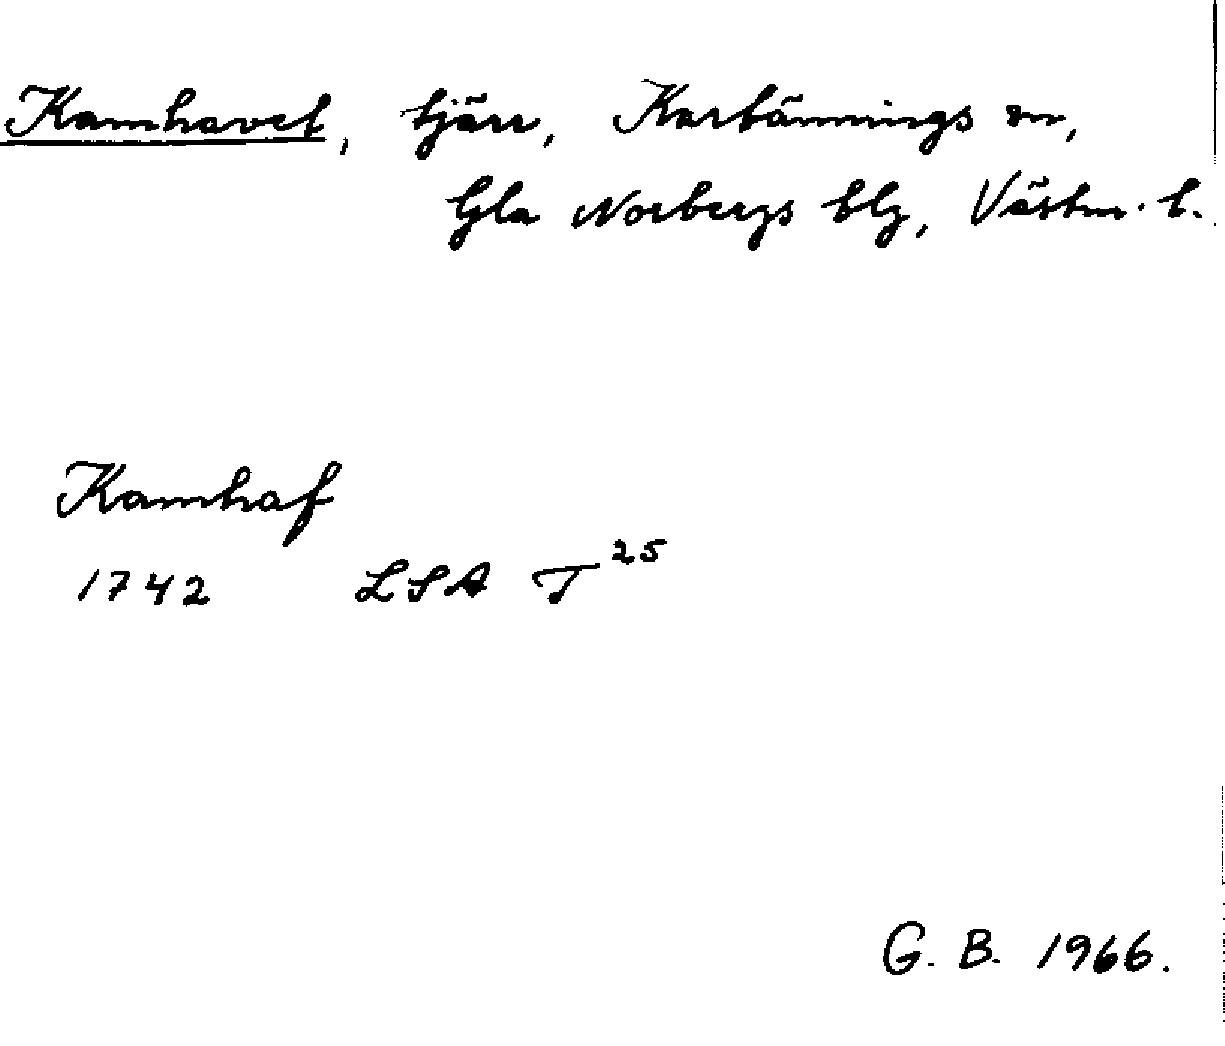 Kamhavet, tjärr, Karbännings sn,
Gla Norbergs blg, Västm. l.
Kamhaf
1742 LSA T 25
G. B. 1966.